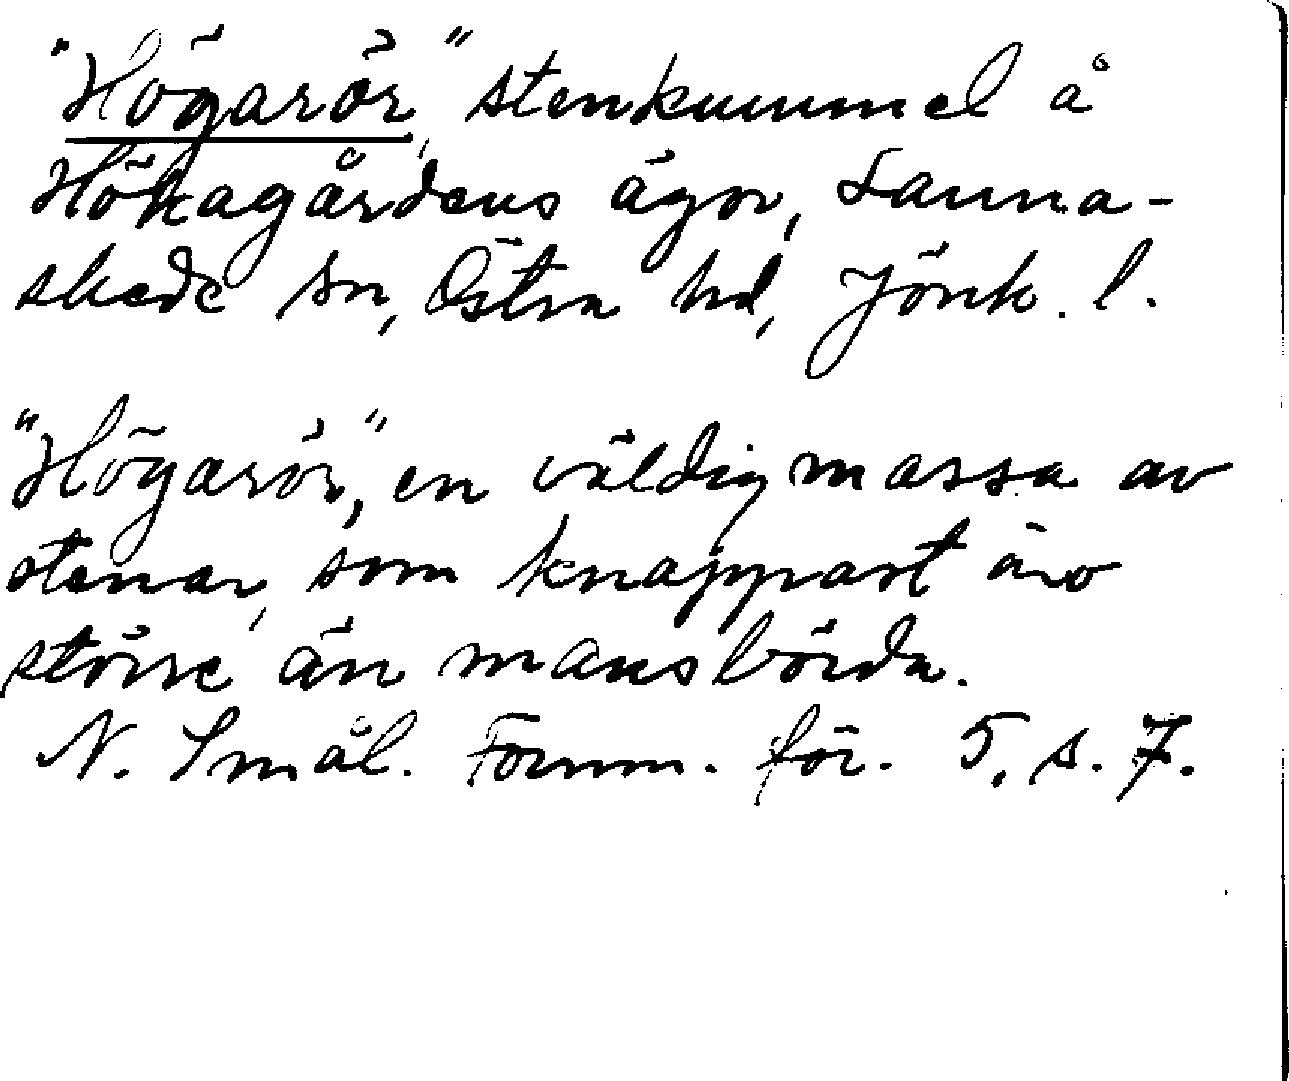 "Högarör," stenkummel å
Hökagårdens ägor, Lanna-
skede sn, Östra hd, Jönk. l.
"Högarör," en väldig massa av
stenar, som knappast äro
större än mansbörda.
N. Smål. Fornm. för. 5, s. 7.